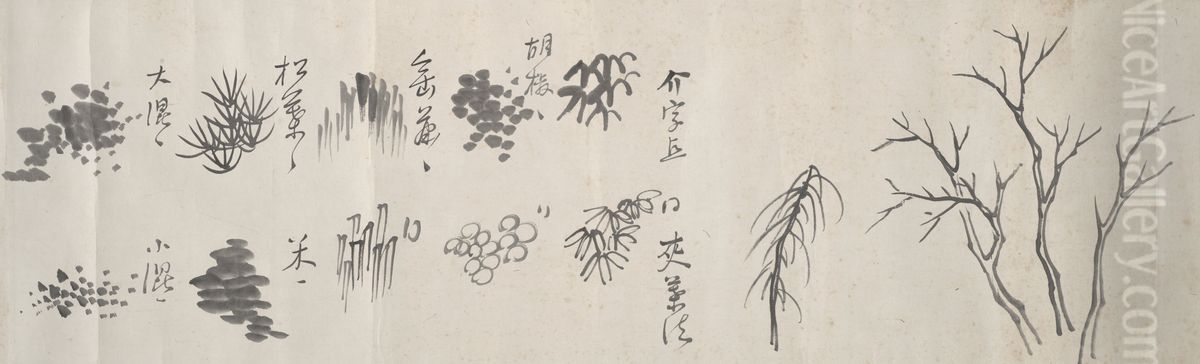 介字点
胡椒、
垂葉、
松葉、
大混、
同 夾葉法
米、
小混、
NiceArtGallery.com